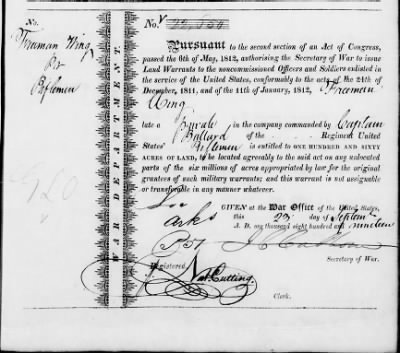 No. 22,834
Freeman King
Pr
Riflemen
Pursuant to the second section of an Act of Congress,
passed the 6th of May, 1812, authorising the Secretary of War to issue
Land Warrants to the noncommissioned Officers and Soldiers enlisted in
the service of the United States, conformably to the acts of the 24th of
December, 1811, and of the 11th of January, 1812, Freeman
King
late a Private in the company commanded by Captain
Ballard of the Regiment United
States' Riflemen is entitled to ONE HUNDRED AND SIXTY
ACRES OF LAND, to be located agreeably to the said act on any unlocated
parts of the six millions of acres appropriated by law for the original
grantees of such military warrants; and this warrant is not assignable
or transferable in any manner whatever.
WAR DEPARTMENT.
GIVEN at the War Office of the United States,
Arks this 23 day of Septem
A. D. one thousand eight hundred and nineteen
J C Calhoun
Secretary of War.
Registered,
Nat. Cutting
Clerk.